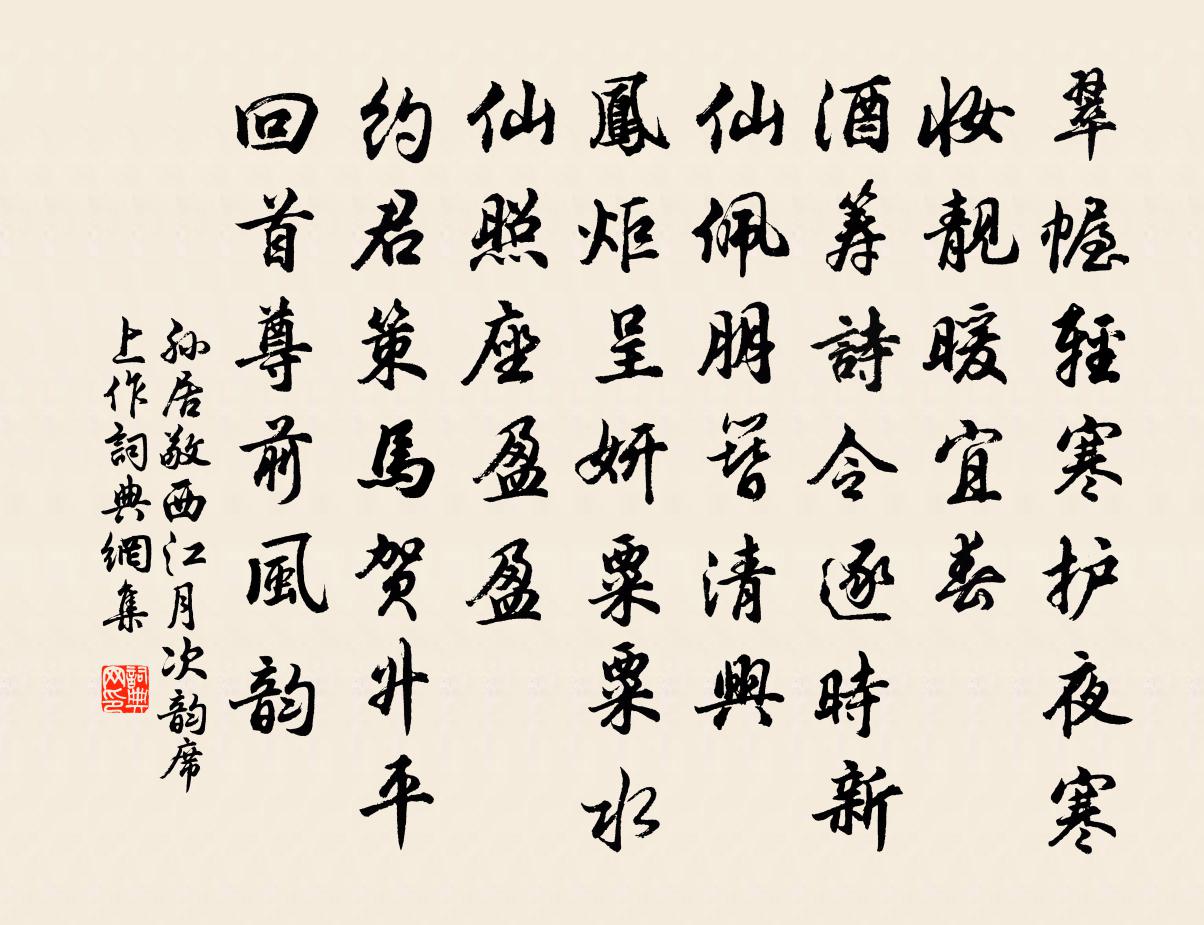 翠幄輕寒护夜寒
妆靚暖宜春
酒筹詩令逐時新
仙佩朋簪清興
鳳炬呈妍粟粟水
仙照座盈盈
约君策馬贺升平
回首尊前風韵
孙居敬西江月次韵席
上作詞典網集
詞典网印